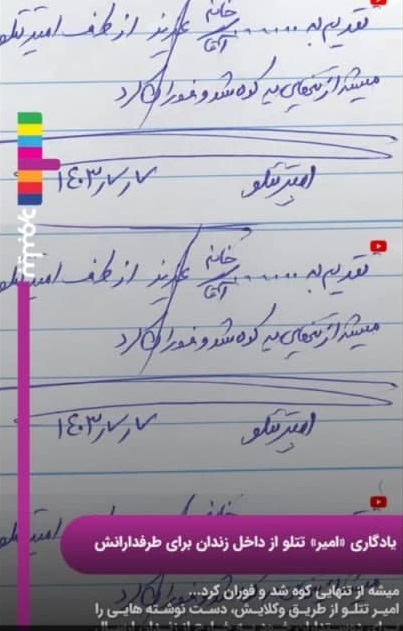 تقدیم به ...... خانم/آقا عزیز از طرف امیر تتلو
میشه از تنهایی یه کوه شد و فوران کرد
امیر تتلو
۱۴۰۳
تقدیم به ...... خانم/آقا عزیز از طرف امیر تتلو
میشه از تنهایی یه کوه شد و فوران کرد
امیر تتلو
۱۴۰۳
یادگاری «امیر» تتلو از داخل زندان برای طرفدارانش
میشه از تنهایی کوه شد و فوران کرد...
امیر تتلو از طریق وکلایش، دست نوشته هایی را